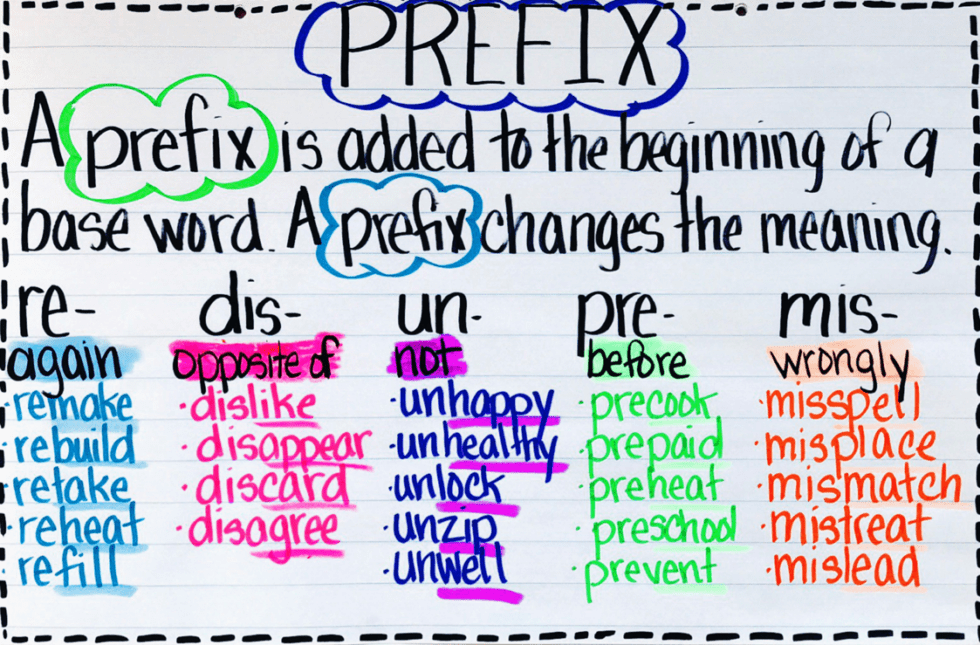 PREFIX
A prefix is added to the beginning of a
base word. A prefix changes the meaning.
re- dis- un- pre- mis-
again opposite of not before wrongly
·remake ·dislike ·unhappy ·precook ·misspell
·rebuild ·disappear ·unhealthy ·prepaid ·misplace
·retake ·discard ·unlock ·preheat ·mismatch
·reheat ·disagree ·unzip ·preschool ·mistreat
·refill ·unwell ·prevent ·mislead